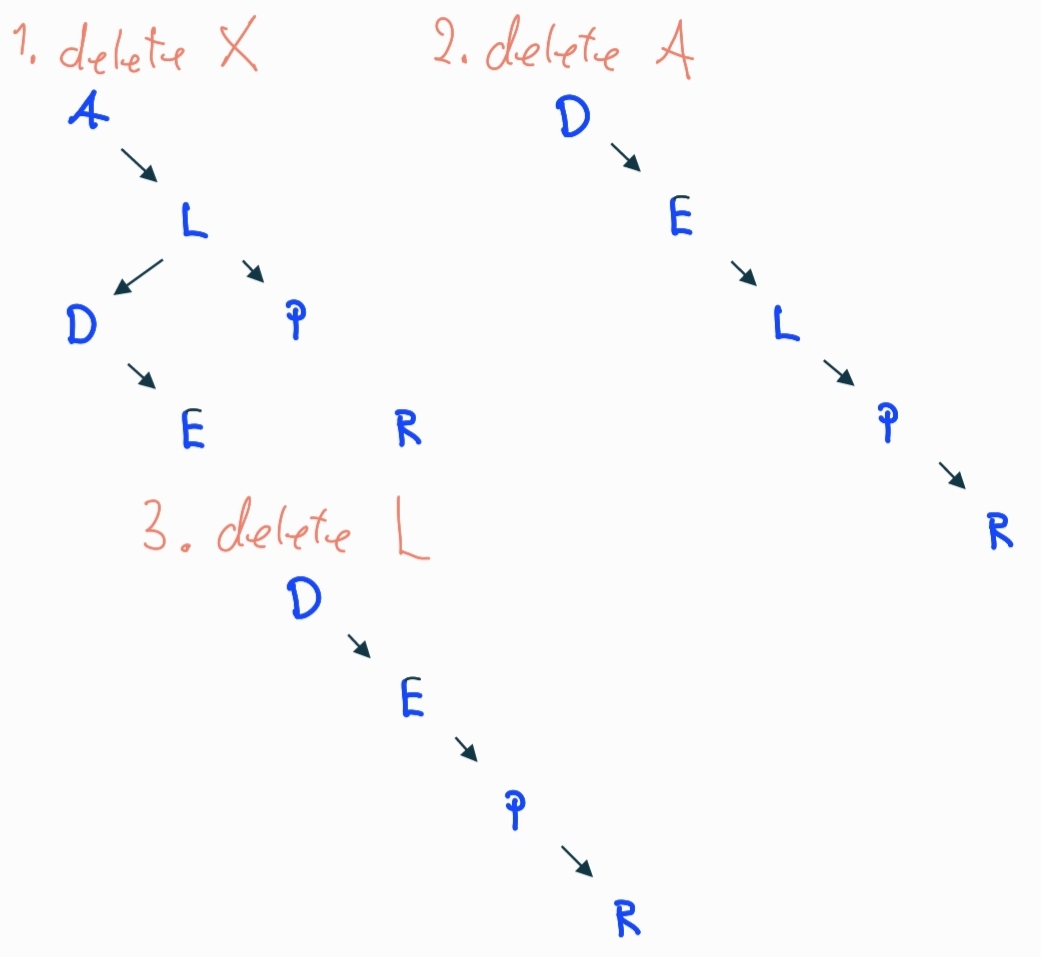 1. delete X
A
L
D P
E R
2. delete A
D
E
L
P
R
3. delete L
D
E
P
R